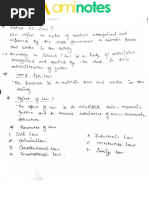 aminotes
What is Law?
Law refers to rules of conduct recognized and
enforced by the state government to maintain peace
and order in the society.
According to Salmond "Law is the body of principles
recognized and applied by the state in the
administration of justice"
Need for law
The purpose is to maintain peace and order in the
society
Object of law
The object of law is to establish socio-economic
justice and to remove imbalances of socio-economic
structure
Branches of law
Civil Law
Criminal Law
Constitutional Law
International Law
Industrial Law
Mercantile Law
Family Law